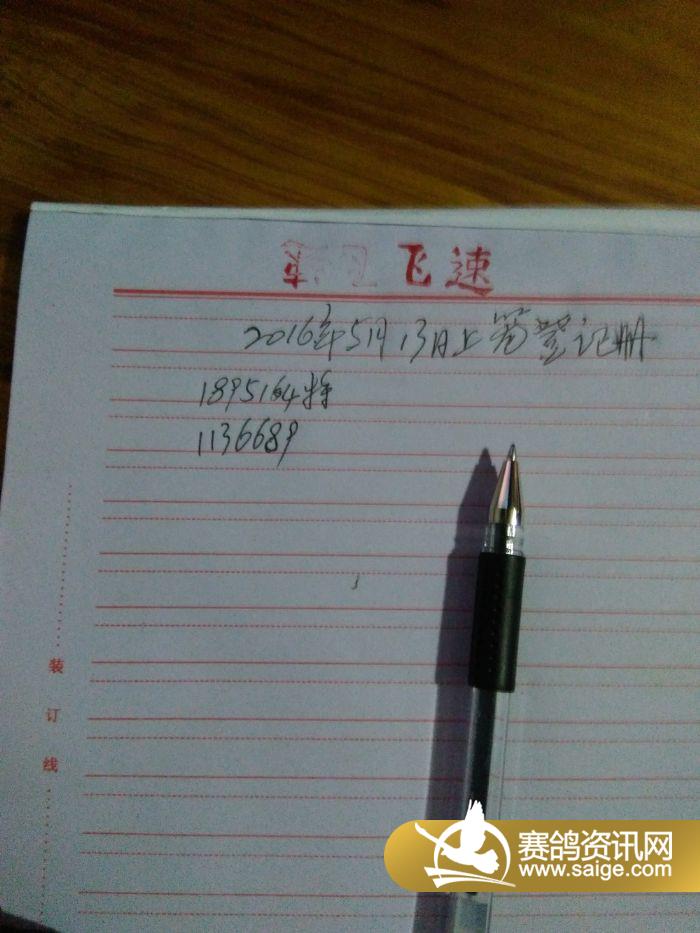 飞速
2016年5月13日上笼登记册
1895164特
1136689
装订线
赛鸽资讯网
www.saige.com